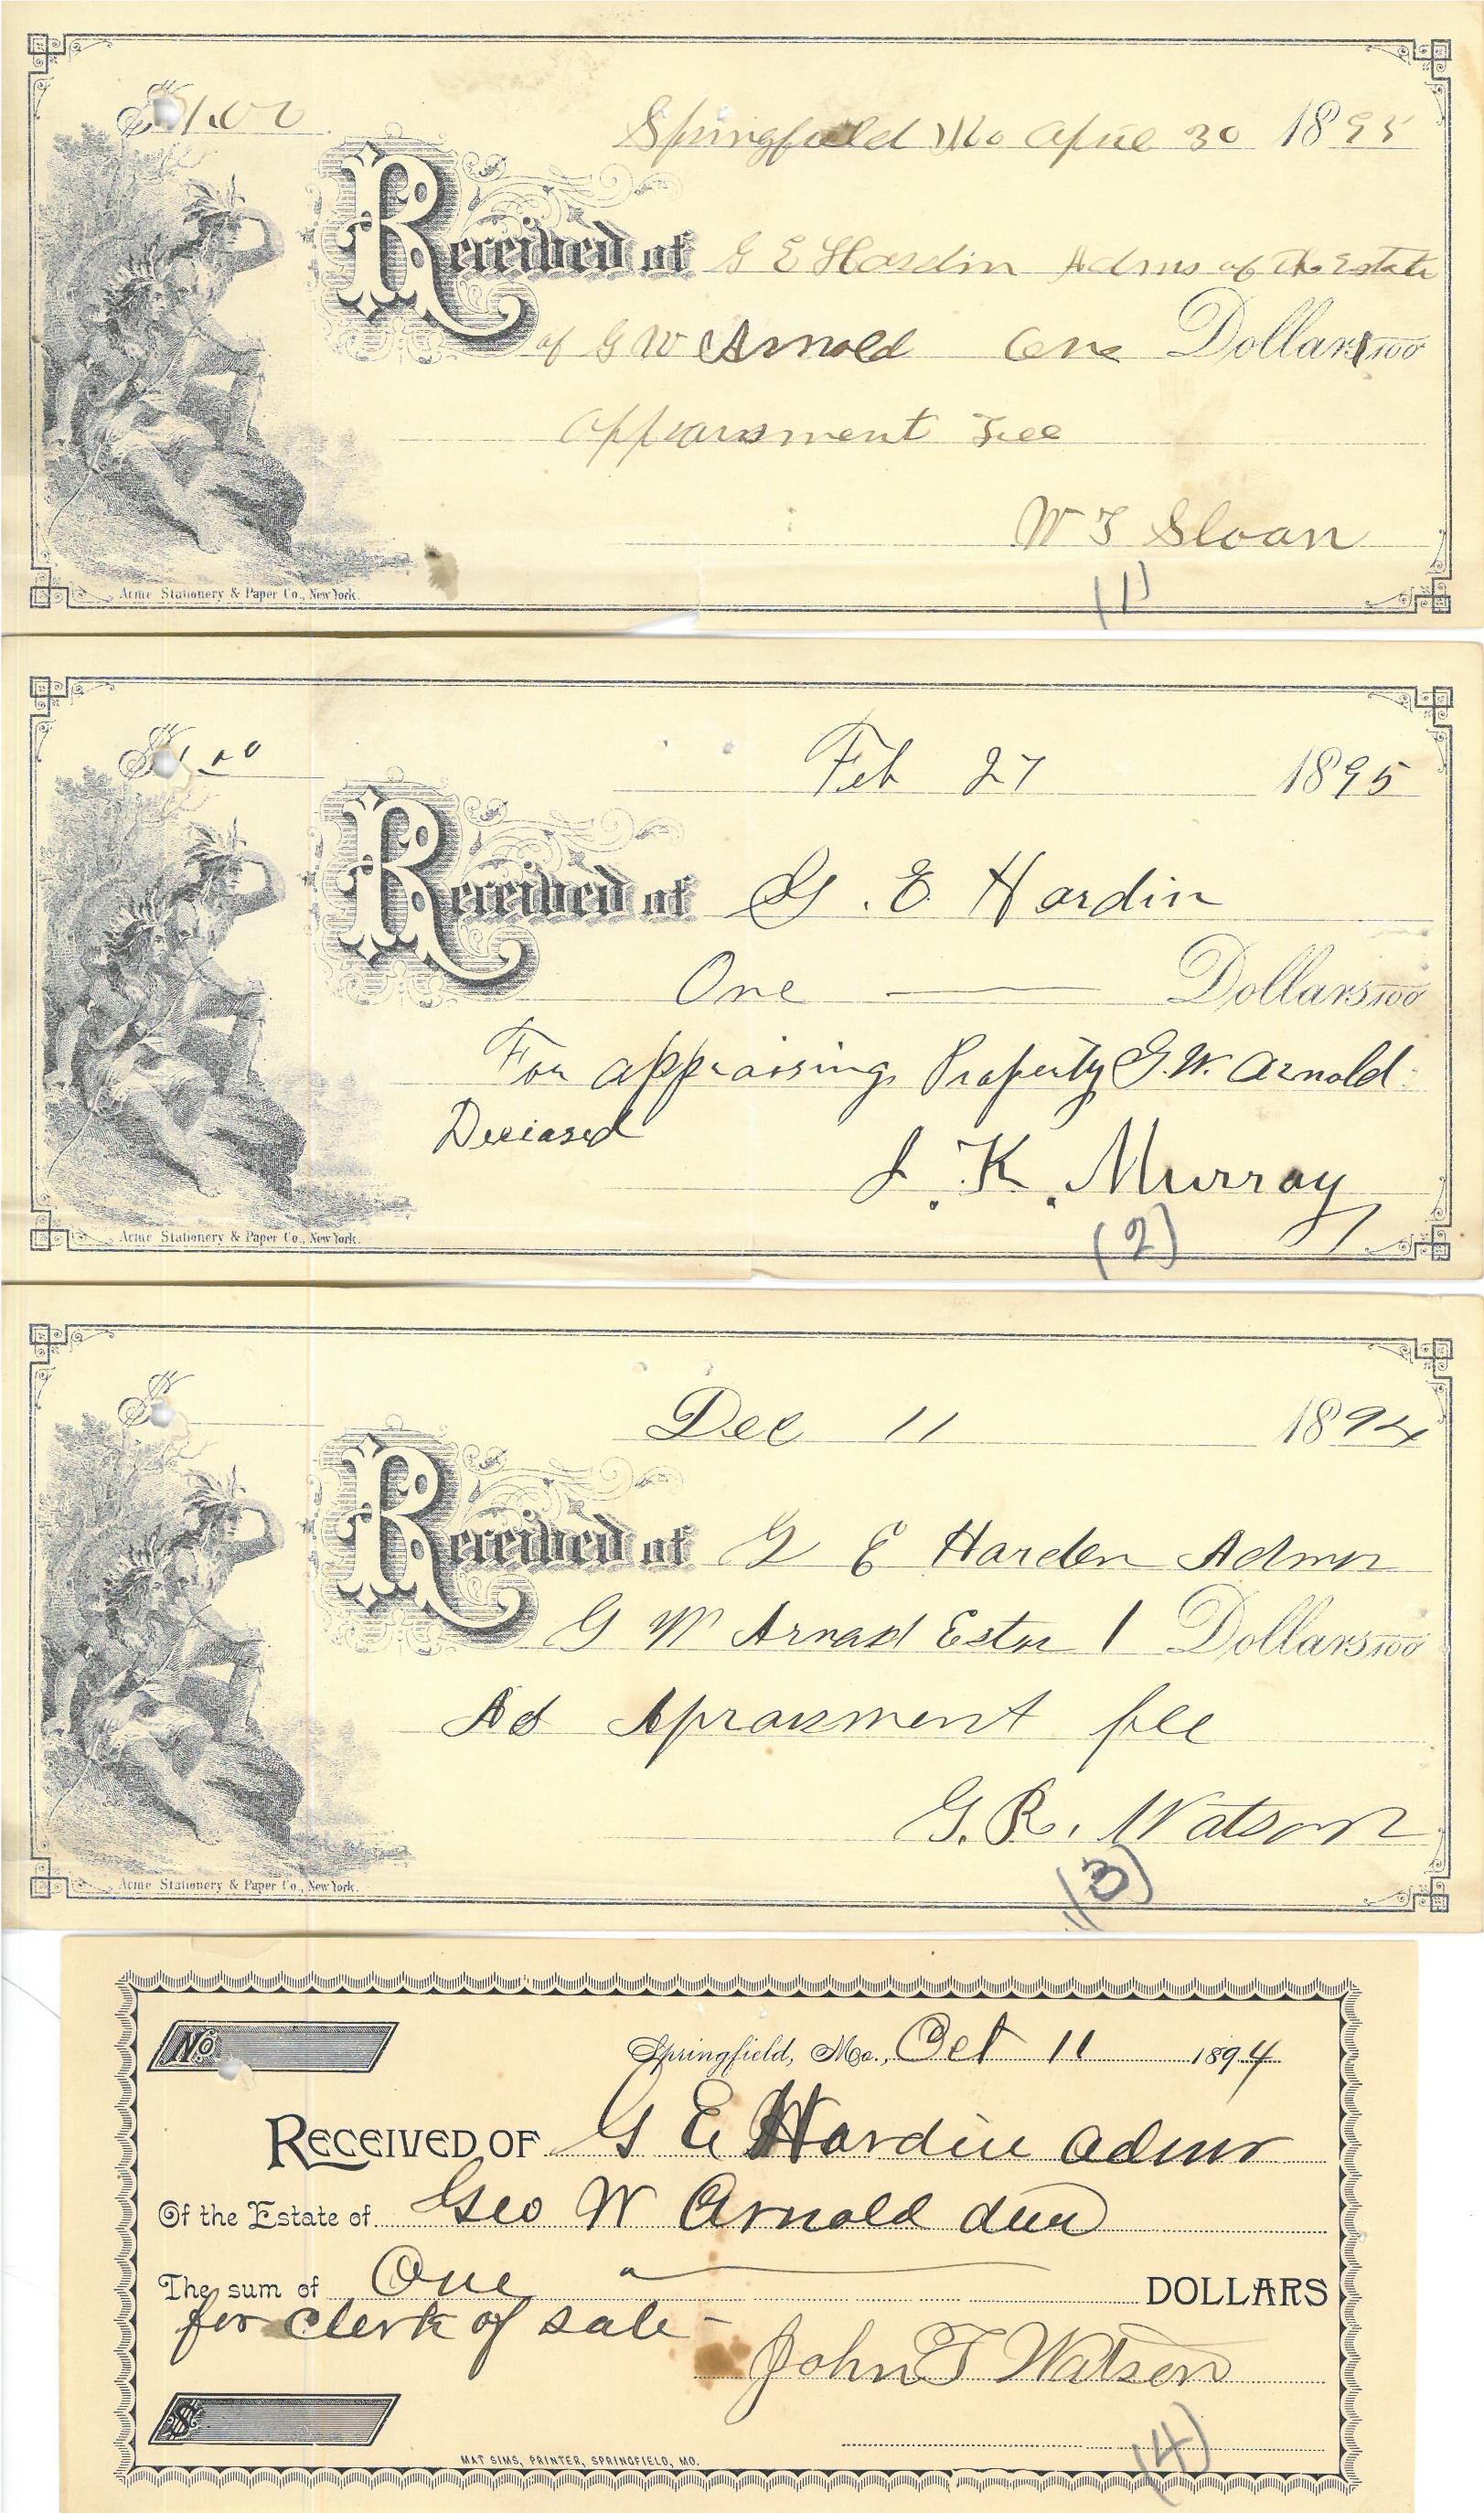 $1.00
Springfield Mo April 30 1895
Received of G E Hardin Adms of The Estate
of G W Arnold One Dollars 100
Appraisment Fee
W T Sloan
Acme Stationery & Paper Co., New York.
(1)
$1.00
Feb 27 1895
Received of G. E. Hardin
One Dollars 100
For appraising Property G. W. Arnold
Deceased
J. K. Murray
Acme Stationery & Paper Co., New York.
(2)
$
Dec 11 1894
Received of G E Harden Admr
G W Arnad Estar 1 Dollars 100
As Apraisment fee
G. R. Watson
Acme Stationery & Paper Co., New York.
(3)
No.
Springfield, Mo., Oct 11 1894
RECEIVED OF G E Hardin admr
Of the Estate of Geo W Arnold
The sum of One DOLLARS
for clerk of sale -
John T Watson
$
MAT SIMS, PRINTER, SPRINGFIELD, MO.
(4)